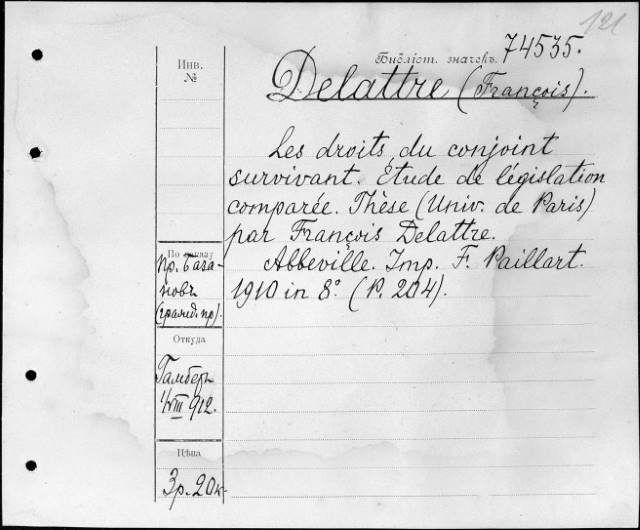 121
Библіот. значекъ. 74535.
Инв.
№
Delattre (François).
Les droits du conjoint
survivant. Étude de législation
comparée. Thèse (Univ. de Paris)
par François Delattre.
Abbeville. Imp. F. Paillart.
1910 in 8° (P. 204).
По заказу
пр. База-
новъ
(гражд. пр).
Откуда
Гамберъ
VIII 912.
Цѣна
3р. 20к.